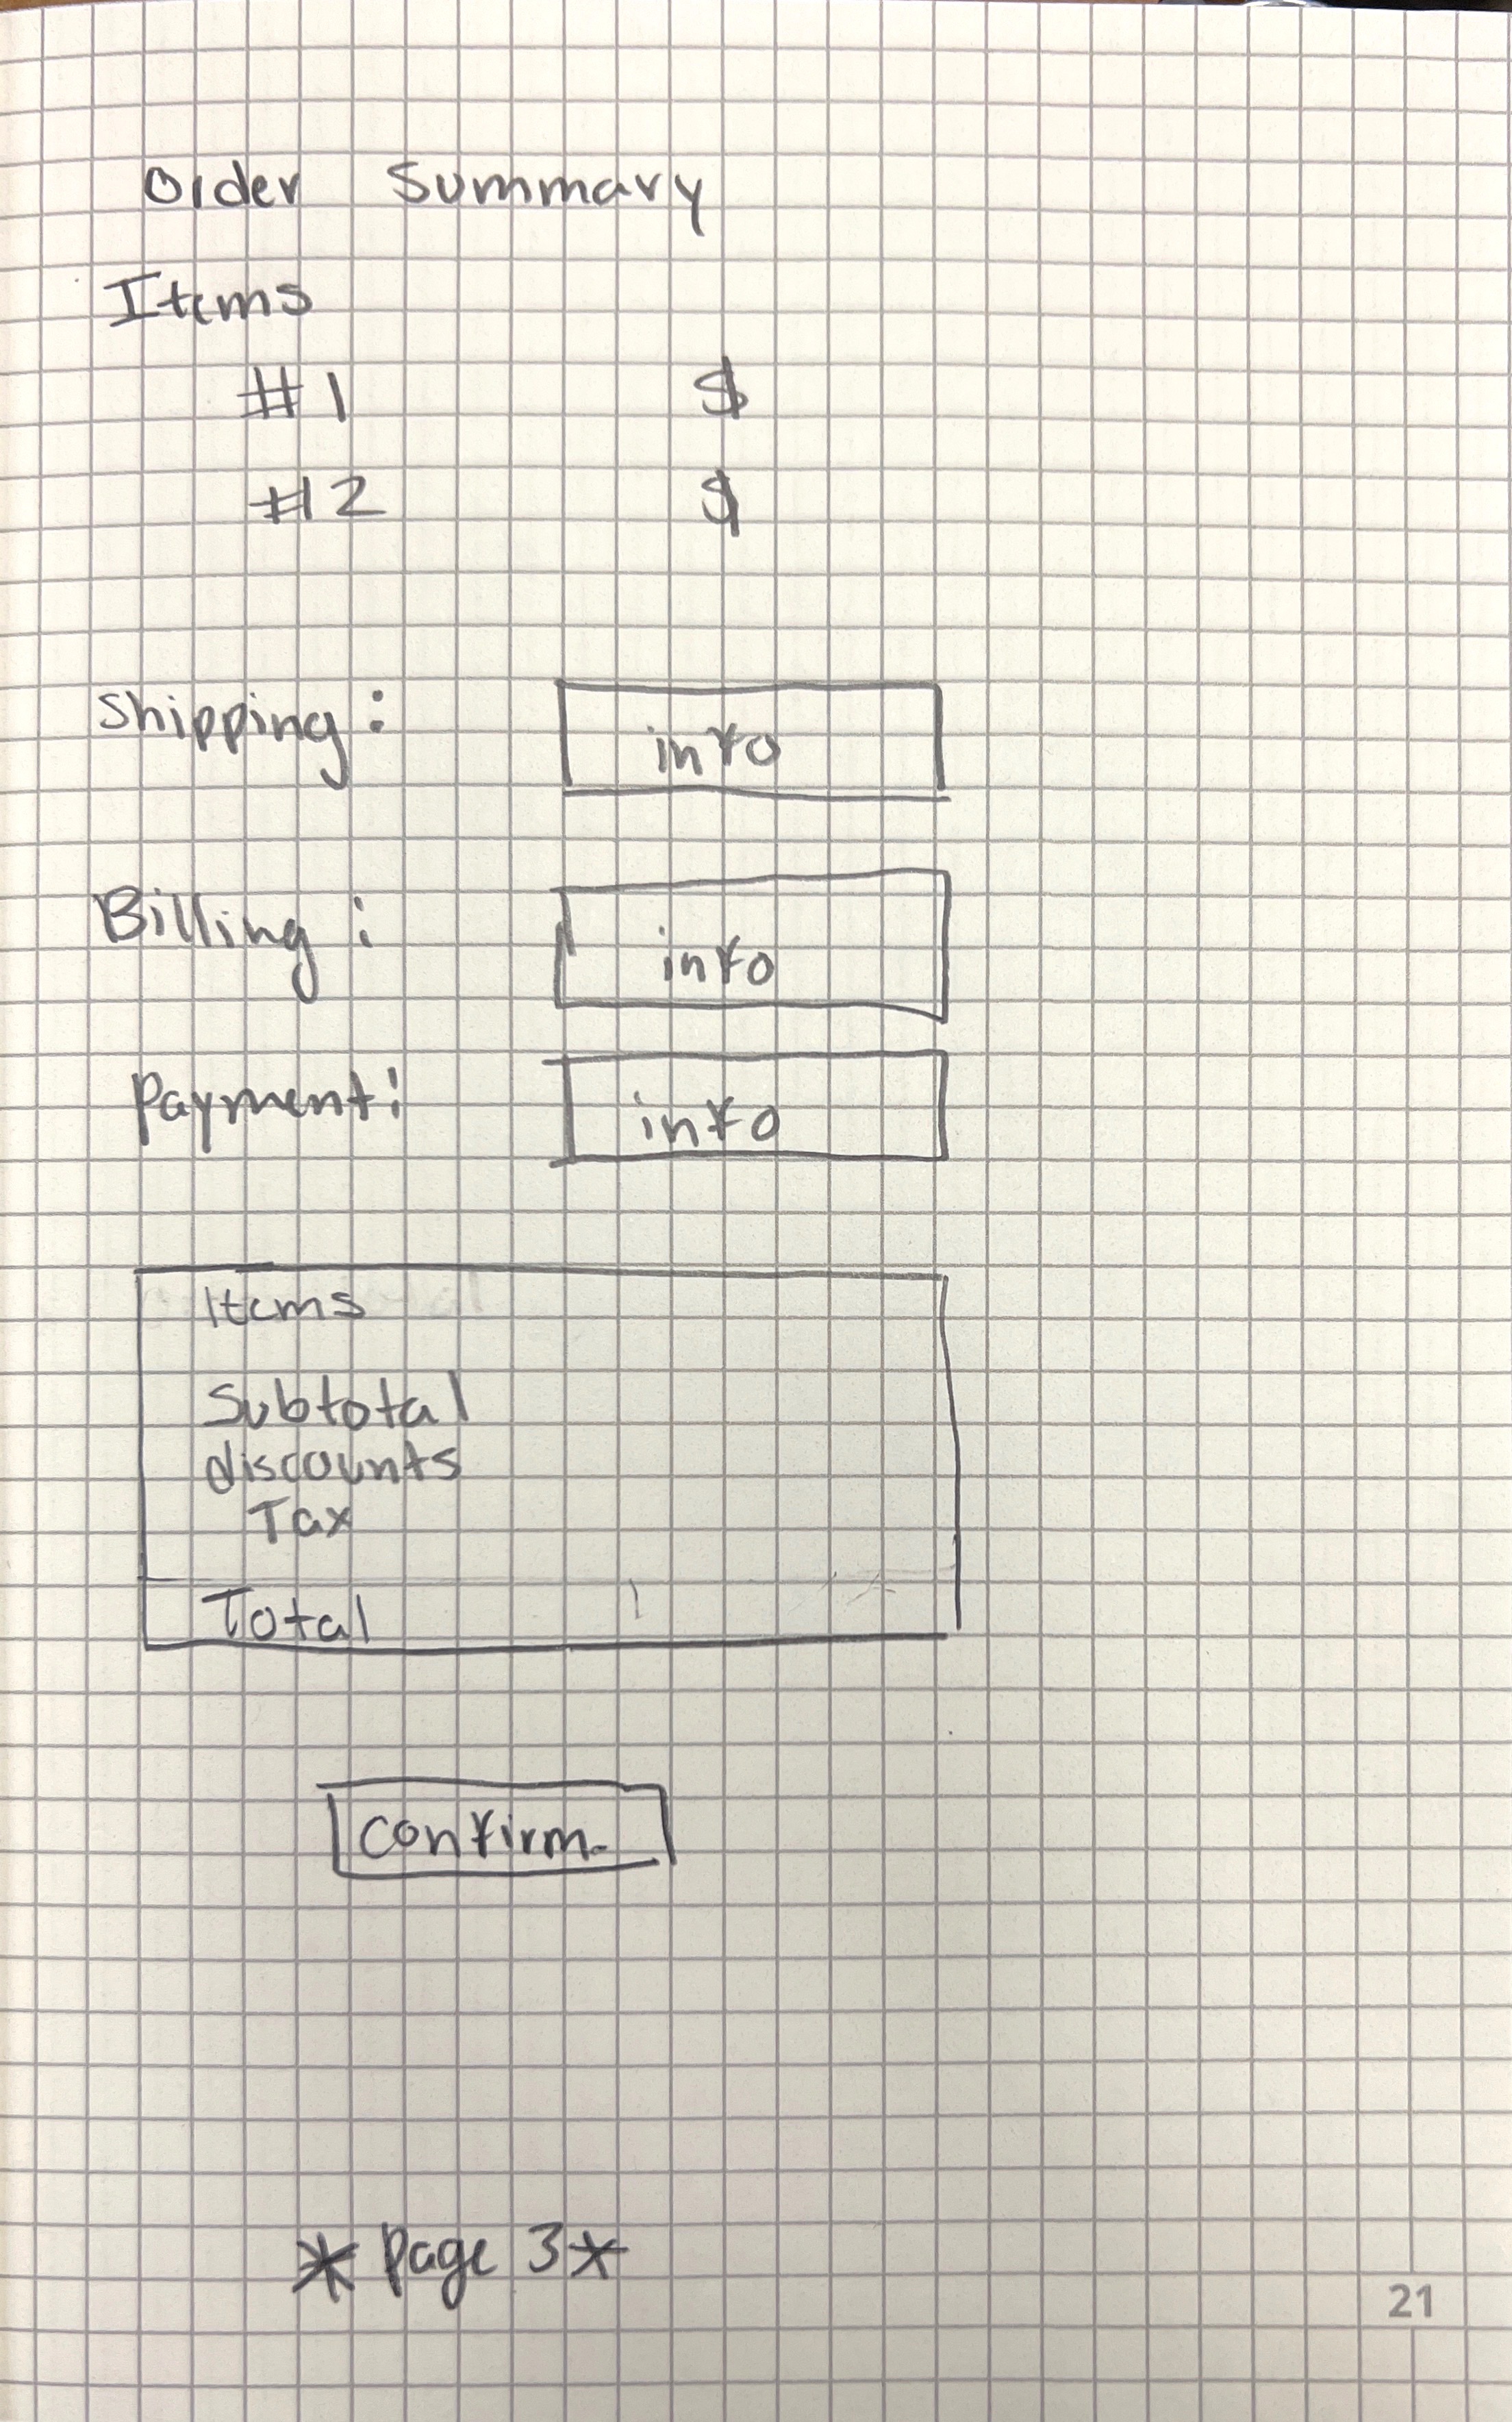 Order Summary
Items
#1 $
#2 $
Shipping: info
Billing: info
Payment: info
Items
Subtotal
discounts
Tax
Total
confirm
* Page 3 *
21